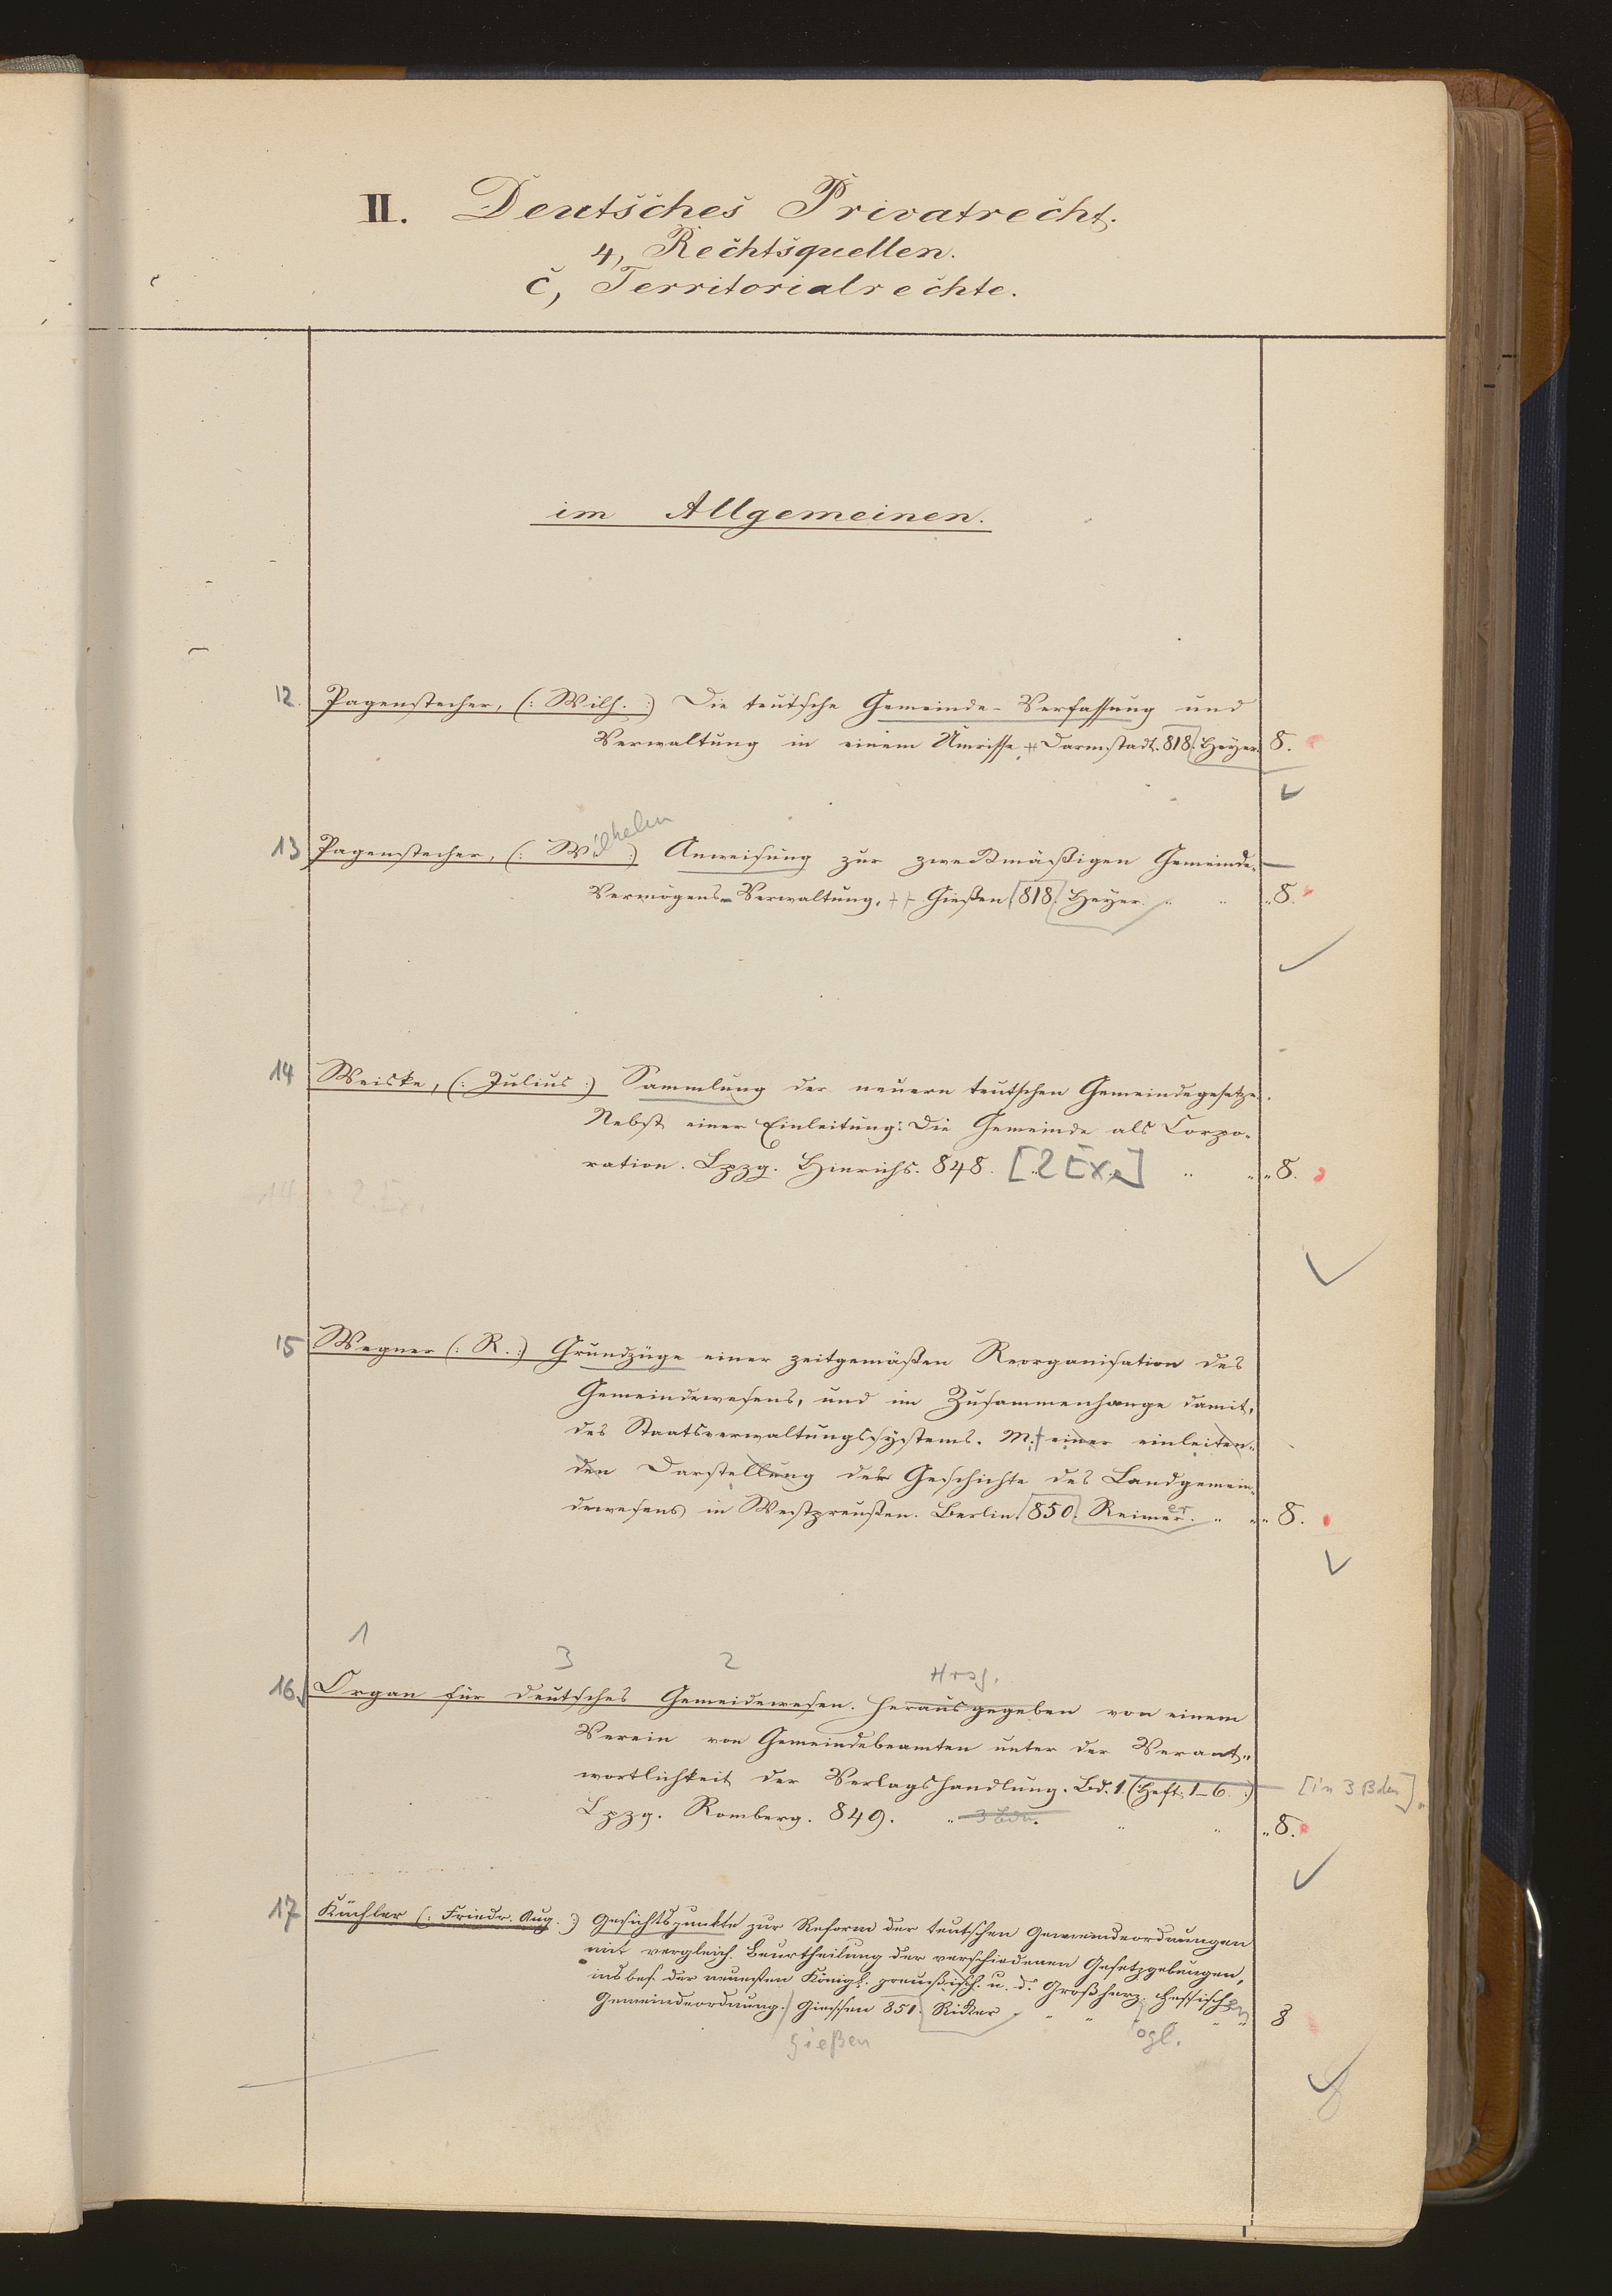 II. Deutsches Privatrecht.
4, Rechtsquellen.
c, Territorialrechte.
im Allgemeinen.
12. Pagenstecher, (: Wilh. :) Die teutsche Gemeinde-Verfassung und
Verwaltung in einem Umrisse. Darmstadt. 818. Heyer. 8.
13 Pagenstecher, (: Wilhelm :) Anweisung zur zweckmäßigen Gemeinde-
Vermögens-Verwaltung. Gießen 818. Heyer. " " "8.
14 Weiske, (: Julius :) Sammlung der neuern teutschen Gemeindegesetze.
Nebst einer Einleitung: Die Gemeinde als Corpo-
ration. Lpzg. Hinrichs. 848. [2 Ex.] " " "8.
14 2 Ex.
15 Wegner (: R. :) Grundzüge einer zeitgemäßen Reorganisation des
Gemeindewesens, und im Zusammenhange damit,
des Staatsverwaltungssystems. Mit einer einleiten-
den Darstellung der Geschichte des Landgemein-
dewesens in Westpreußen. Berlin. 850. Reimer. " " "8.
1 3 2 Hrsg.
16. Organ für deutsches Gemeidewesen. Herausgegeben von einem
Verein von Gemeindebeamten unter der Verant-
wortlichkeit der Verlagshandlung. Bd. 1. (: Heft. 1-6. :) [in 3 Bden]
Lpzg. Romberg. 849. " 3 Bde. " " "8.
17 Küchler (: Friedr. Aug. :) Gesichtspunkte zur Reform der teutschen Gemeindeordnungen
mit vergleich. Beurtheilung der verschiedenen Gesetzgebungen,
insbes. der neuesten Königl. preußisch. u. d. Großherz. Hessischen
Gemeindeordnung. Giessen 851. Ricker " " " " 8
Gießen ogl.